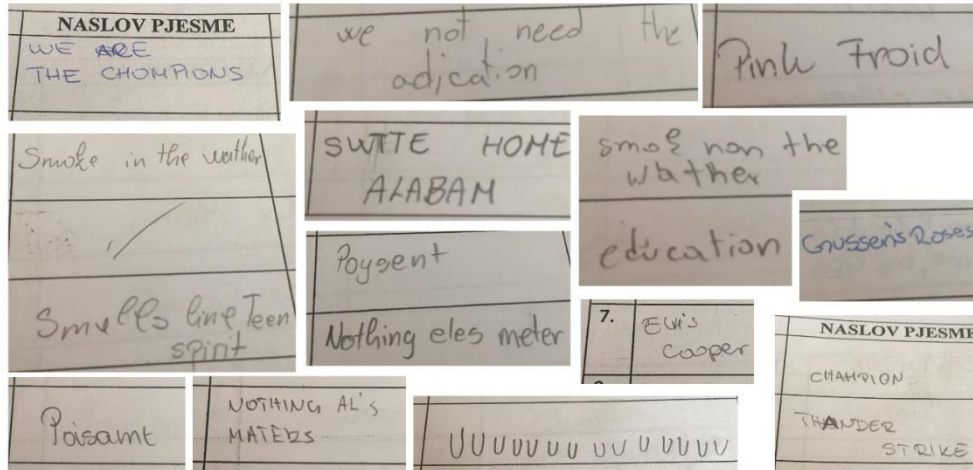 NASLOV PJESME
WE ARE
THE CHOMPIONS
we not need the
adication
Pink Froid
Smoke in the wather
Smells line Teen
spirit
SWTTE HOME
ALABAM
Poysent
Nothing eles meter
smok non the
wather
education
Gnussens Roses
7.
Elvis
Cooper
NASLOV PJESME
CHAMPION
THANDER
STRIKE
Poisamt
NOTHING AL's
MATERS
UUUUUUU UU U UUUUU